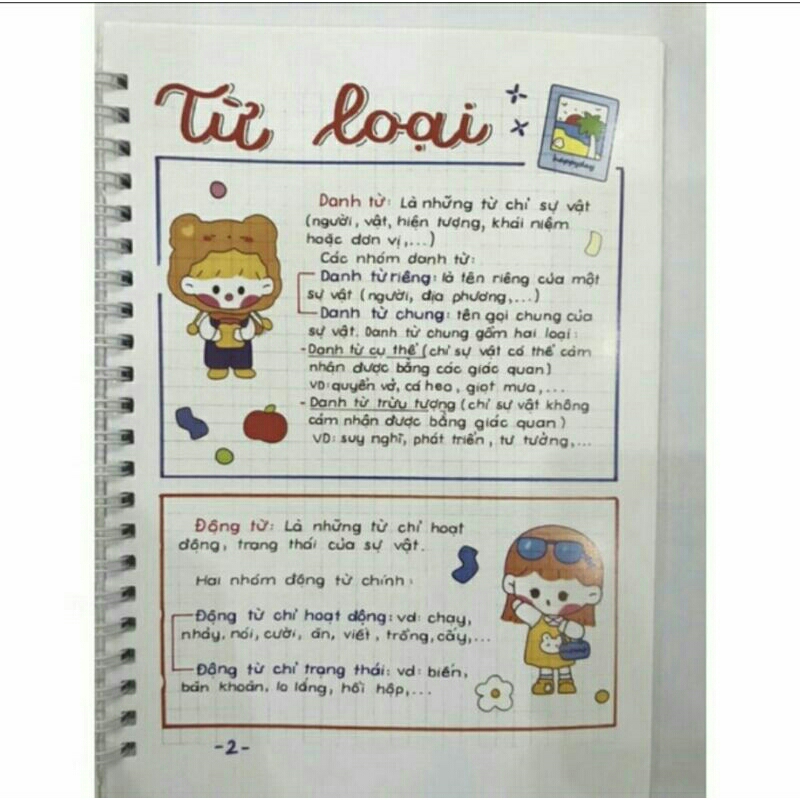 Từ loại
happyday
Danh từ: Là những từ chỉ sự vật
(người, vật, hiện tượng, khái niệm
hoặc đơn vị,...)
Các nhóm danh từ:
Danh từ riêng: là tên riêng của một
sự vật (người, địa phương,...)
Danh từ chung: tên gọi chung của
sự vật. Danh từ chung gồm hai loại:
-Danh từ cụ thể (chỉ sự vật có thể cảm
nhận được bằng các giác quan)
VD: quyển vở, cá heo, giọt mưa,...
-Danh từ trừu tượng (chỉ sự vật không
cảm nhận được bằng giác quan)
VD: suy nghĩ, phát triển, tư tưởng,...
Động từ: Là những từ chỉ hoạt
động, trạng thái của sự vật.
Hai nhóm động từ chính:
Động từ chỉ hoạt động: vd: chạy,
nhảy, nói, cười, ăn, viết, trồng, cày,...
Động từ chỉ trạng thái: vd: biến,
băn khoăn, lo lắng, hồi hộp,...
-2-